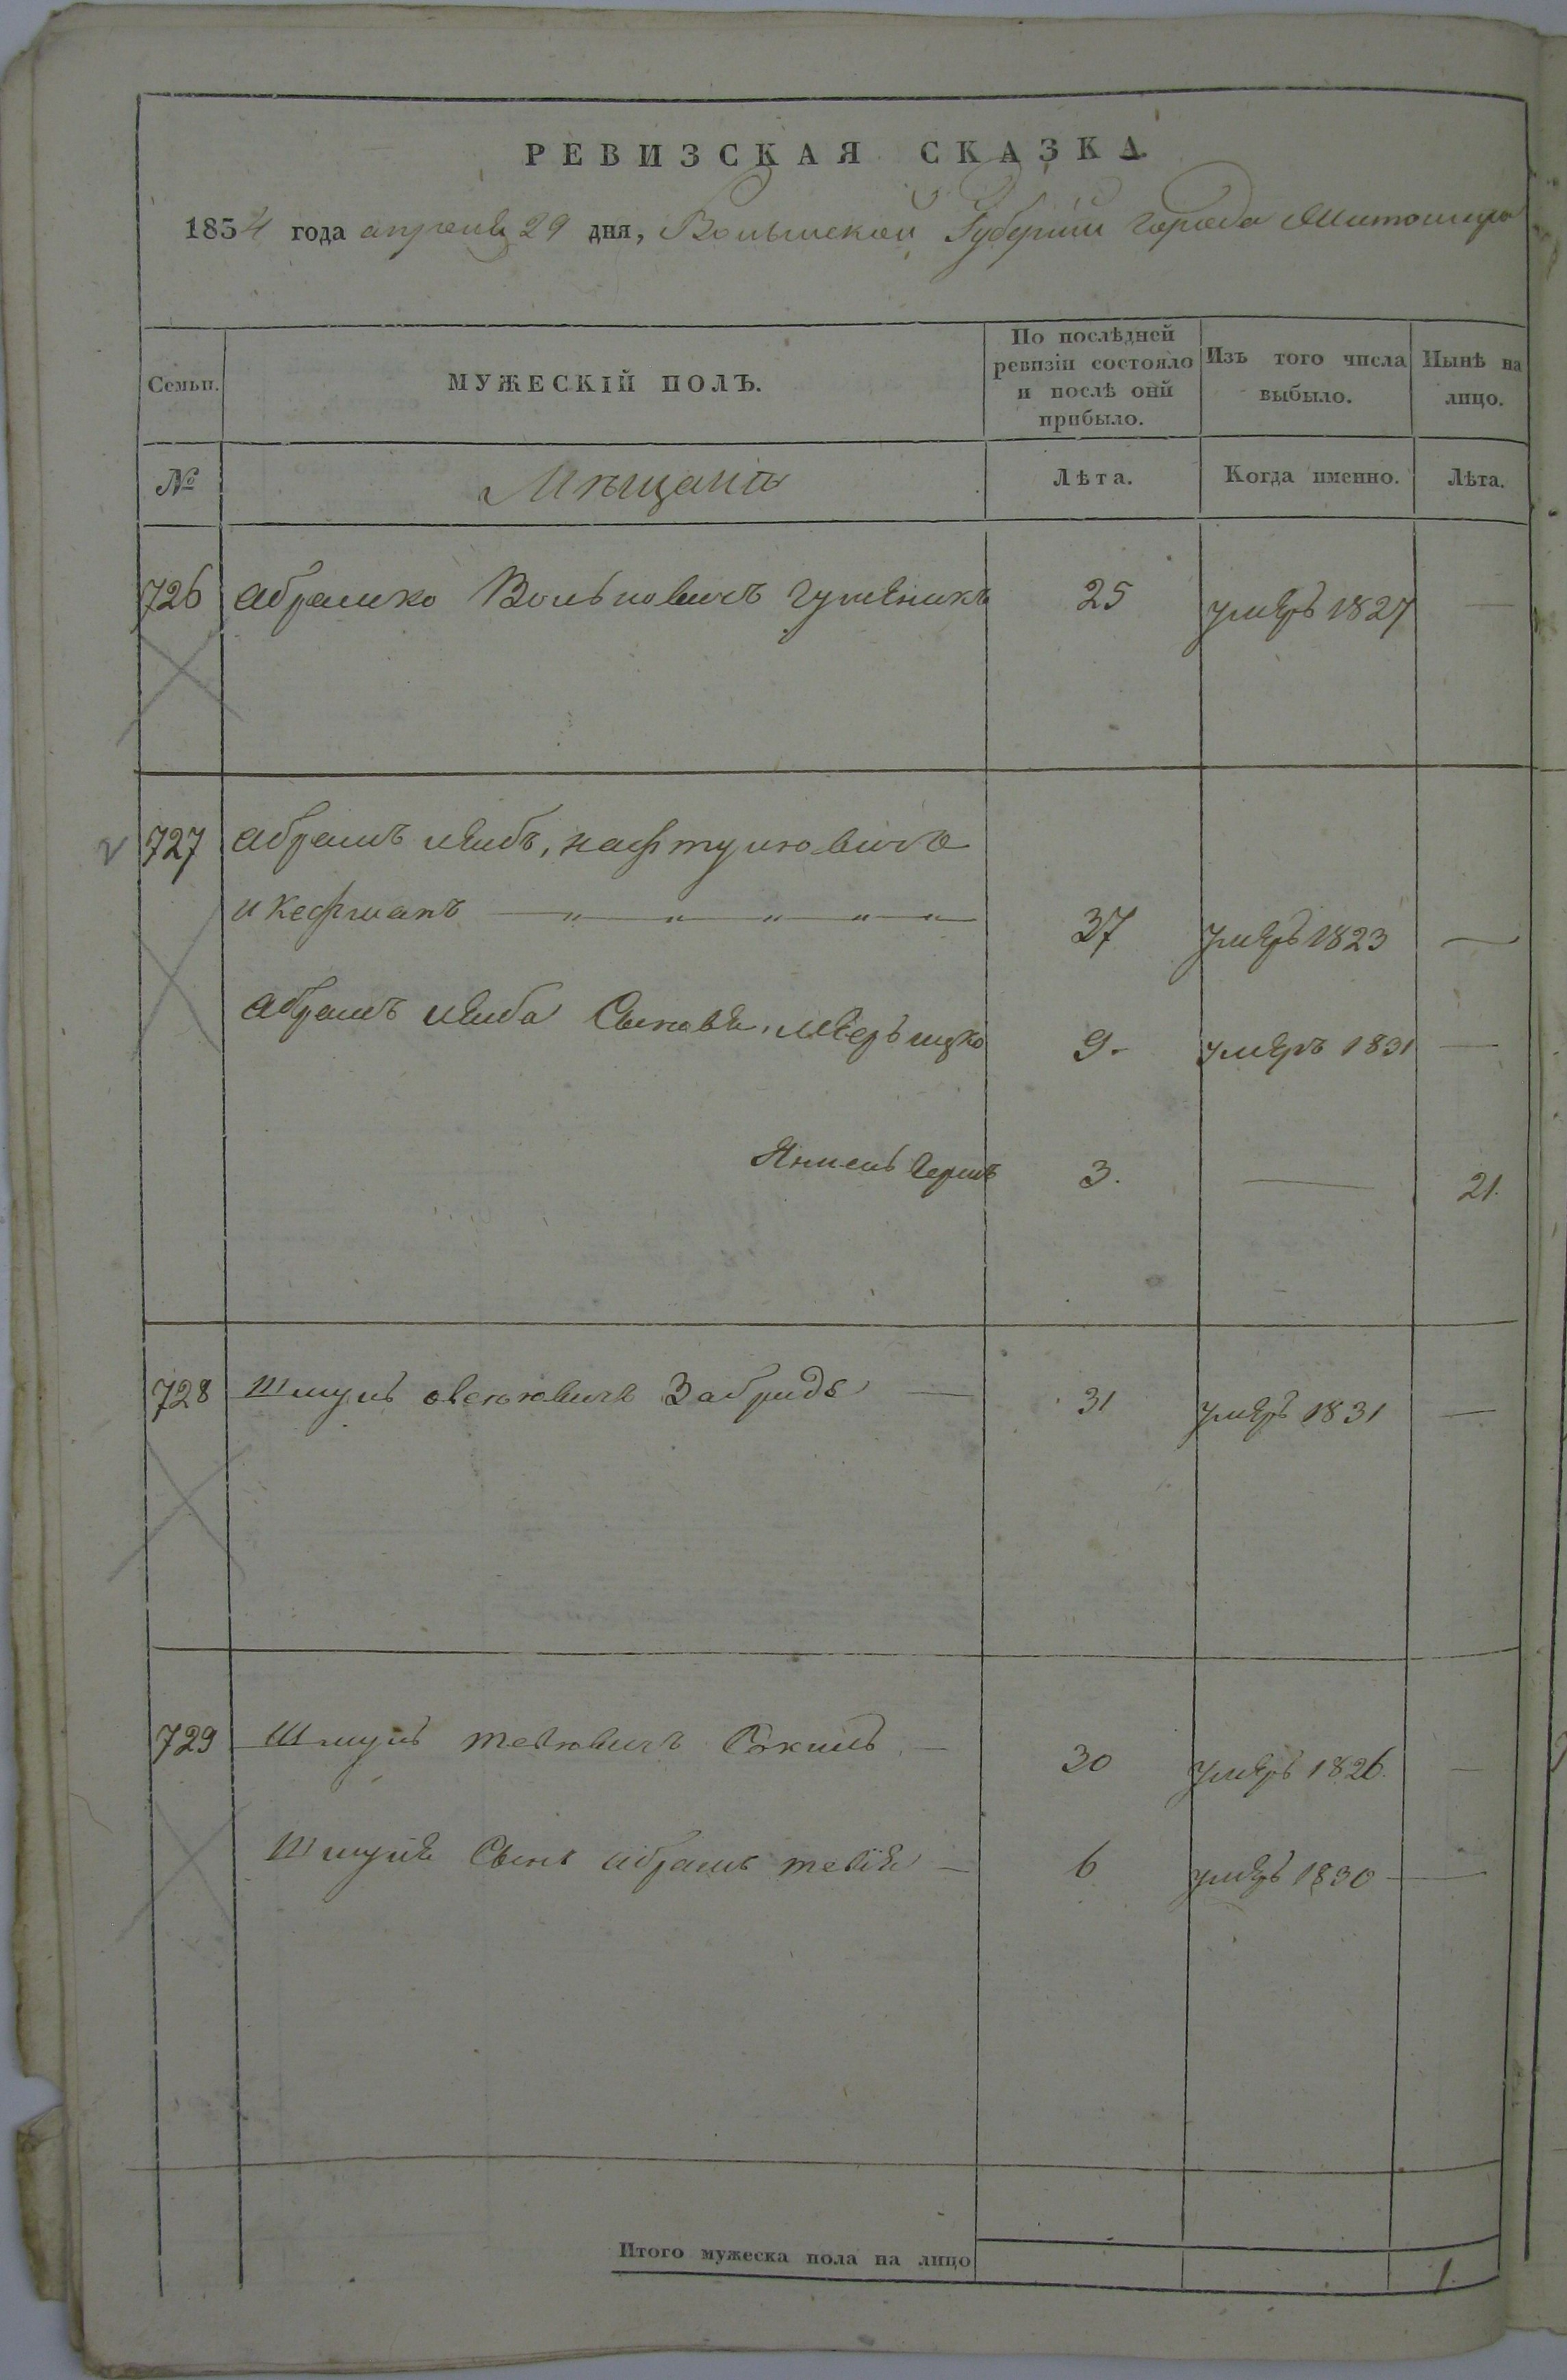 РЕВИЗСКАЯ СКАЗКА
1834 года апреля 29 дня, Волынской Губернiи города Житомира
Семьи. МУЖЕСКІЙ ПОЛЪ. По послѣдней ревизіи состояло и послѣ онй прибыло. Изъ того числа выбыло. Нынѣ на лицо.
№ Мѣщанъ Лѣта. Когда именно. Лѣта.
726 Абрамко Вольповичъ 25 умеръ 1827 —
727 Абрамъ Лейбъ,
37 умеръ 1823 —
Абрамъ Лейба Сыновья, 9. умеръ 1831 —
3. — 21.
728 Шмуль 31 умеръ 1831 —
729 Шмуль Тевювичъ — 30 умеръ 1826. —
Шмуля Сынъ Абрамъ Тевiя — 6 умеръ 1830 —
Итого мужеска пола на лицо 1.